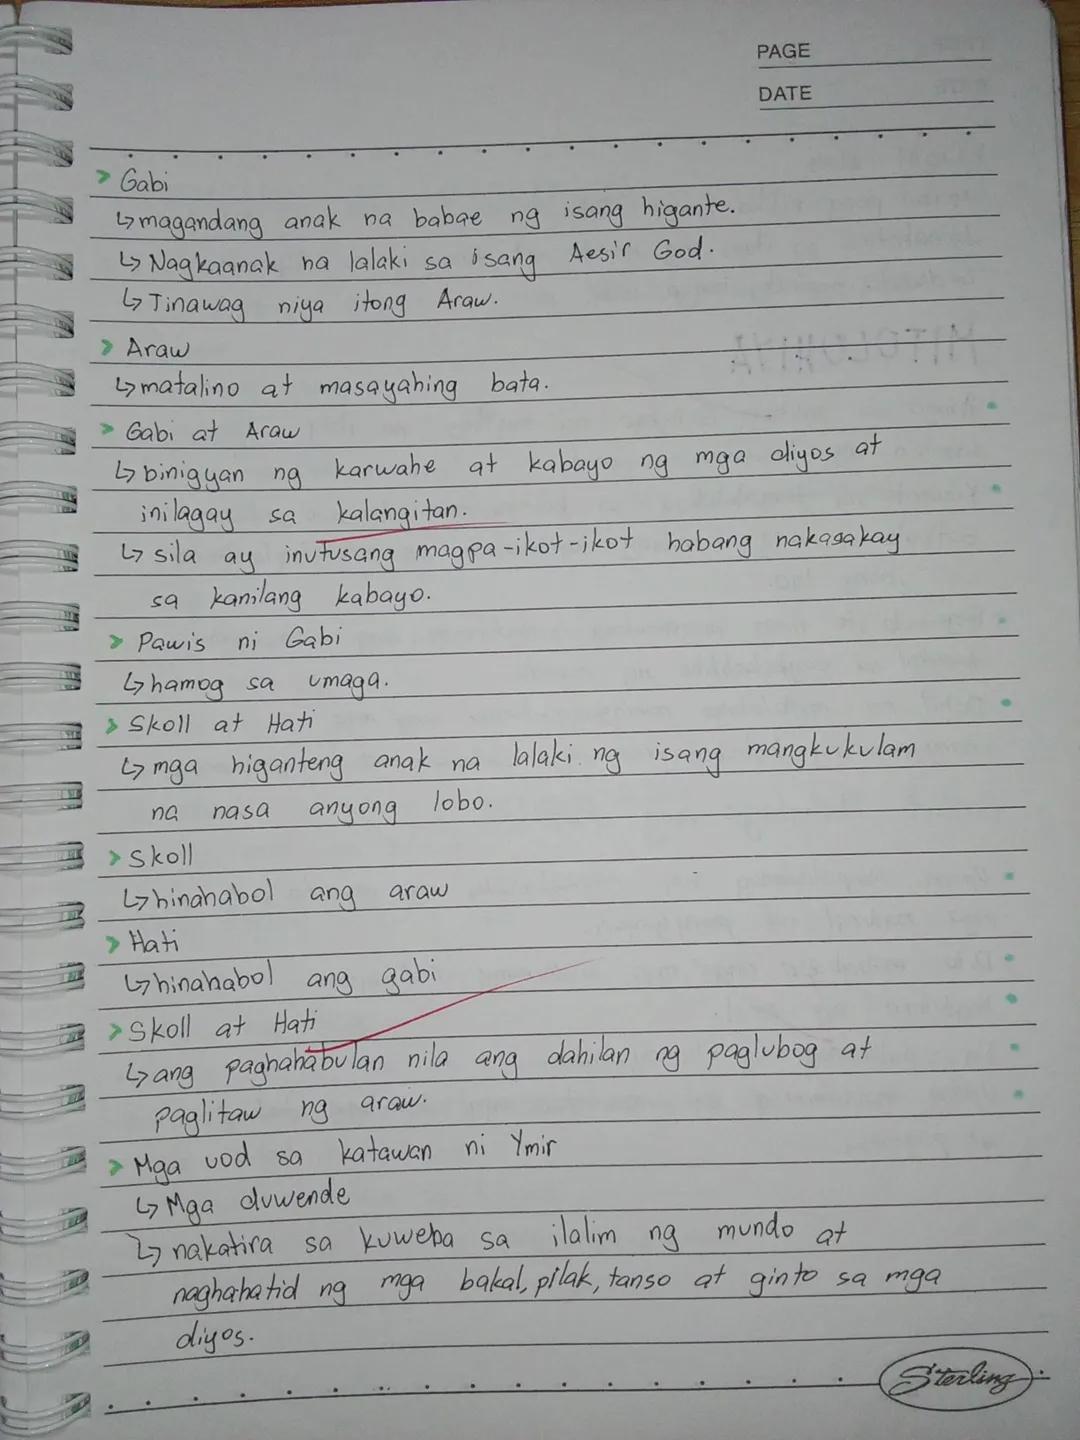 PAGE
DATE
> Gabi
↳ magandang anak na babae ng isang higante.
↳ Nagkaanak na lalaki sa isang Aesir God.
↳ Tinawag niya itong Araw.
> Araw
↳ matalino at masayahing bata.
> Gabi at Araw
↳ binigyan ng karwahe at kabayo ng mga diyos at
inilagay sa kalangitan.
↳ sila ay inutusang magpa-ikot-ikot habang nakasakay
sa kanilang kabayo.
> Pawis ni Gabi
↳ hamog sa umaga.
> Skoll at Hati
↳ mga higanteng anak na lalaki ng isang mangkukulam
na nasa anyong lobo.
> Skoll
↳ hinahabol ang araw
> Hati
↳ hinahabol ang gabi
> Skoll at Hati
↳ ang paghahabulan nila ang dahilan ng paglubog at
paglitaw ng araw.
> Mga uod sa katawan ni Ymir
↳ Mga duwende
↳ nakatira sa kuweba sa ilalim ng mundo at
naghahatid ng mga bakal, pilak, tanso at ginto sa mga
diyos.
Sterling